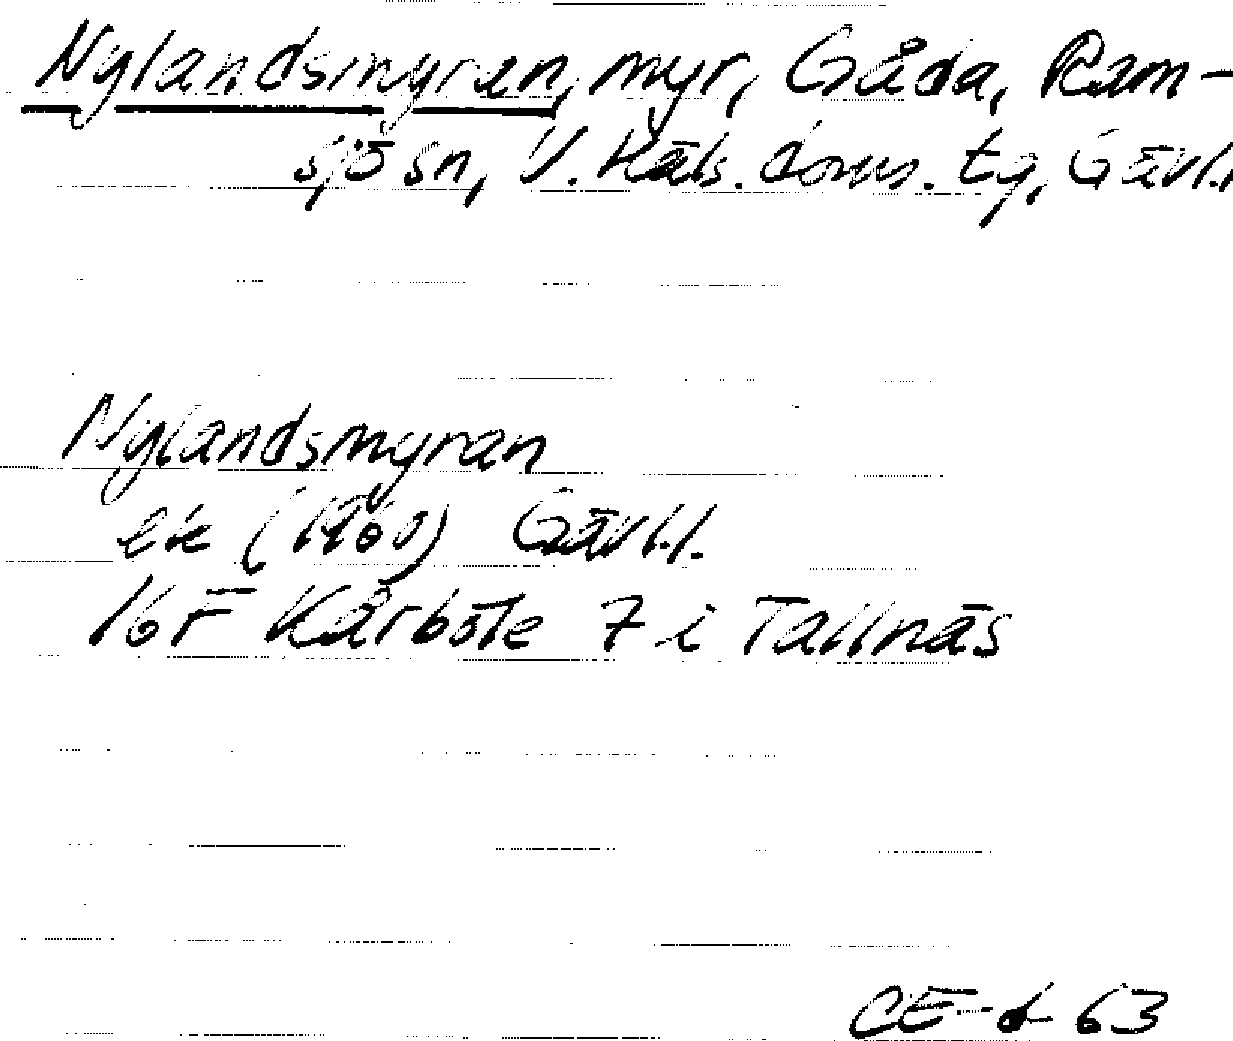 Nylandsmyren, myr, Gåda, Ram-
sjö sn, V. Häls. doms. tg, Gävl.l
Nylandsmyran
ek (1960) Gävl.l.
16F Kårböle 7 i Tallnäs
CE-d 63